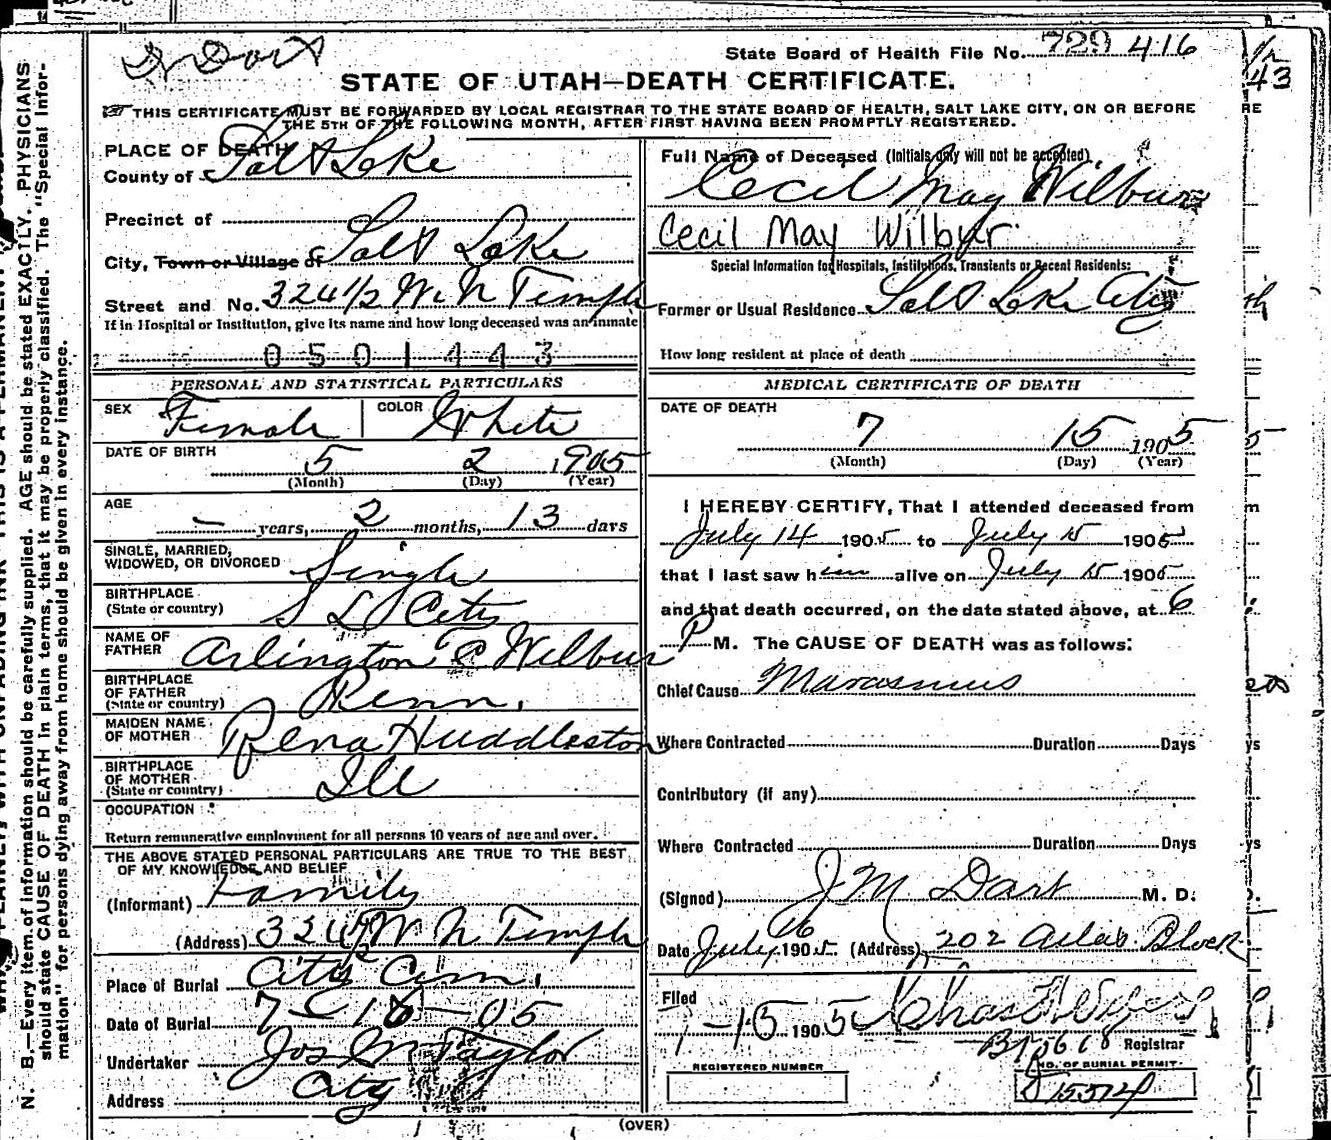 Dr Dart
State Board of Health File No. 729 416
STATE OF UTAH—DEATH CERTIFICATE.
THIS CERTIFICATE MUST BE FORWARDED BY LOCAL REGISTRAR TO THE STATE BOARD OF HEALTH, SALT LAKE CITY, ON OR BEFORE
THE 5TH OF THE FOLLOWING MONTH, AFTER FIRST HAVING BEEN PROMPTLY REGISTERED.
PLACE OF DEATH
County of Salt Lake
Precinct of
City, Town or Village of Salt Lake
Street and No. 324 1/2 W N Temple
If in Hospital or Institution, give its name and how long deceased was an inmate
0501443
PERSONAL AND STATISTICAL PARTICULARS
SEX Female COLOR White
DATE OF BIRTH 5 2 1905
(Month) (Day) (Year)
AGE
— years, 2 months, 13 days
SINGLE, MARRIED,
WIDOWED, OR DIVORCED Single
BIRTHPLACE
(State or country) S L City
NAME OF
FATHER Arlington P Wilbur
BIRTHPLACE
OF FATHER
(State or country) Penn.
MAIDEN NAME
OF MOTHER Rena Huddleston
BIRTHPLACE
OF MOTHER
(State or country) Ill
OCCUPATION
Return remunerative employment for all persons 10 years of age and over.
THE ABOVE STATED PERSONAL PARTICULARS ARE TRUE TO THE BEST
OF MY KNOWLEDGE AND BELIEF
(Informant) Family
(Address) 324 1/2 W N Temple
Place of Burial City Cem.
Date of Burial 7-16-05
Undertaker Jos Wm Taylor
Address City
Full Name of Deceased (Initials only will not be accepted)
Cecil May Wilbur
Cecil May Wilbur
Special Information for Hospitals, Institutions, Transients or Recent Residents:
Former or Usual Residence Salt Lake City
How long resident at place of death
MEDICAL CERTIFICATE OF DEATH
DATE OF DEATH
7 15 1905
(Month) (Day) (Year)
I HEREBY CERTIFY, That I attended deceased from
July 14 1905 to July 15 1905
that I last saw him alive on July 15 1905
and that death occurred, on the date stated above, at 6
P M. The CAUSE OF DEATH was as follows:
Chief Cause Marasmus
Where Contracted Duration Days
Contributory (if any)
Where Contracted Duration Days
(Signed) J M Dart M. D.
Date July 16 1905 (Address) 202 Atlas Block
Filed
7-15 1905 Chas
Registrar
REGISTERED NUMBER
NO. OF BURIAL PERMIT
15514
(OVER)
N. B.—Every item of information should be carefully supplied. AGE should be stated EXACTLY. PHYSICIANS
should state CAUSE OF DEATH in plain terms, that it may be properly classified. The "Special Infor-
mation" for persons dying away from home should be given in every instance.